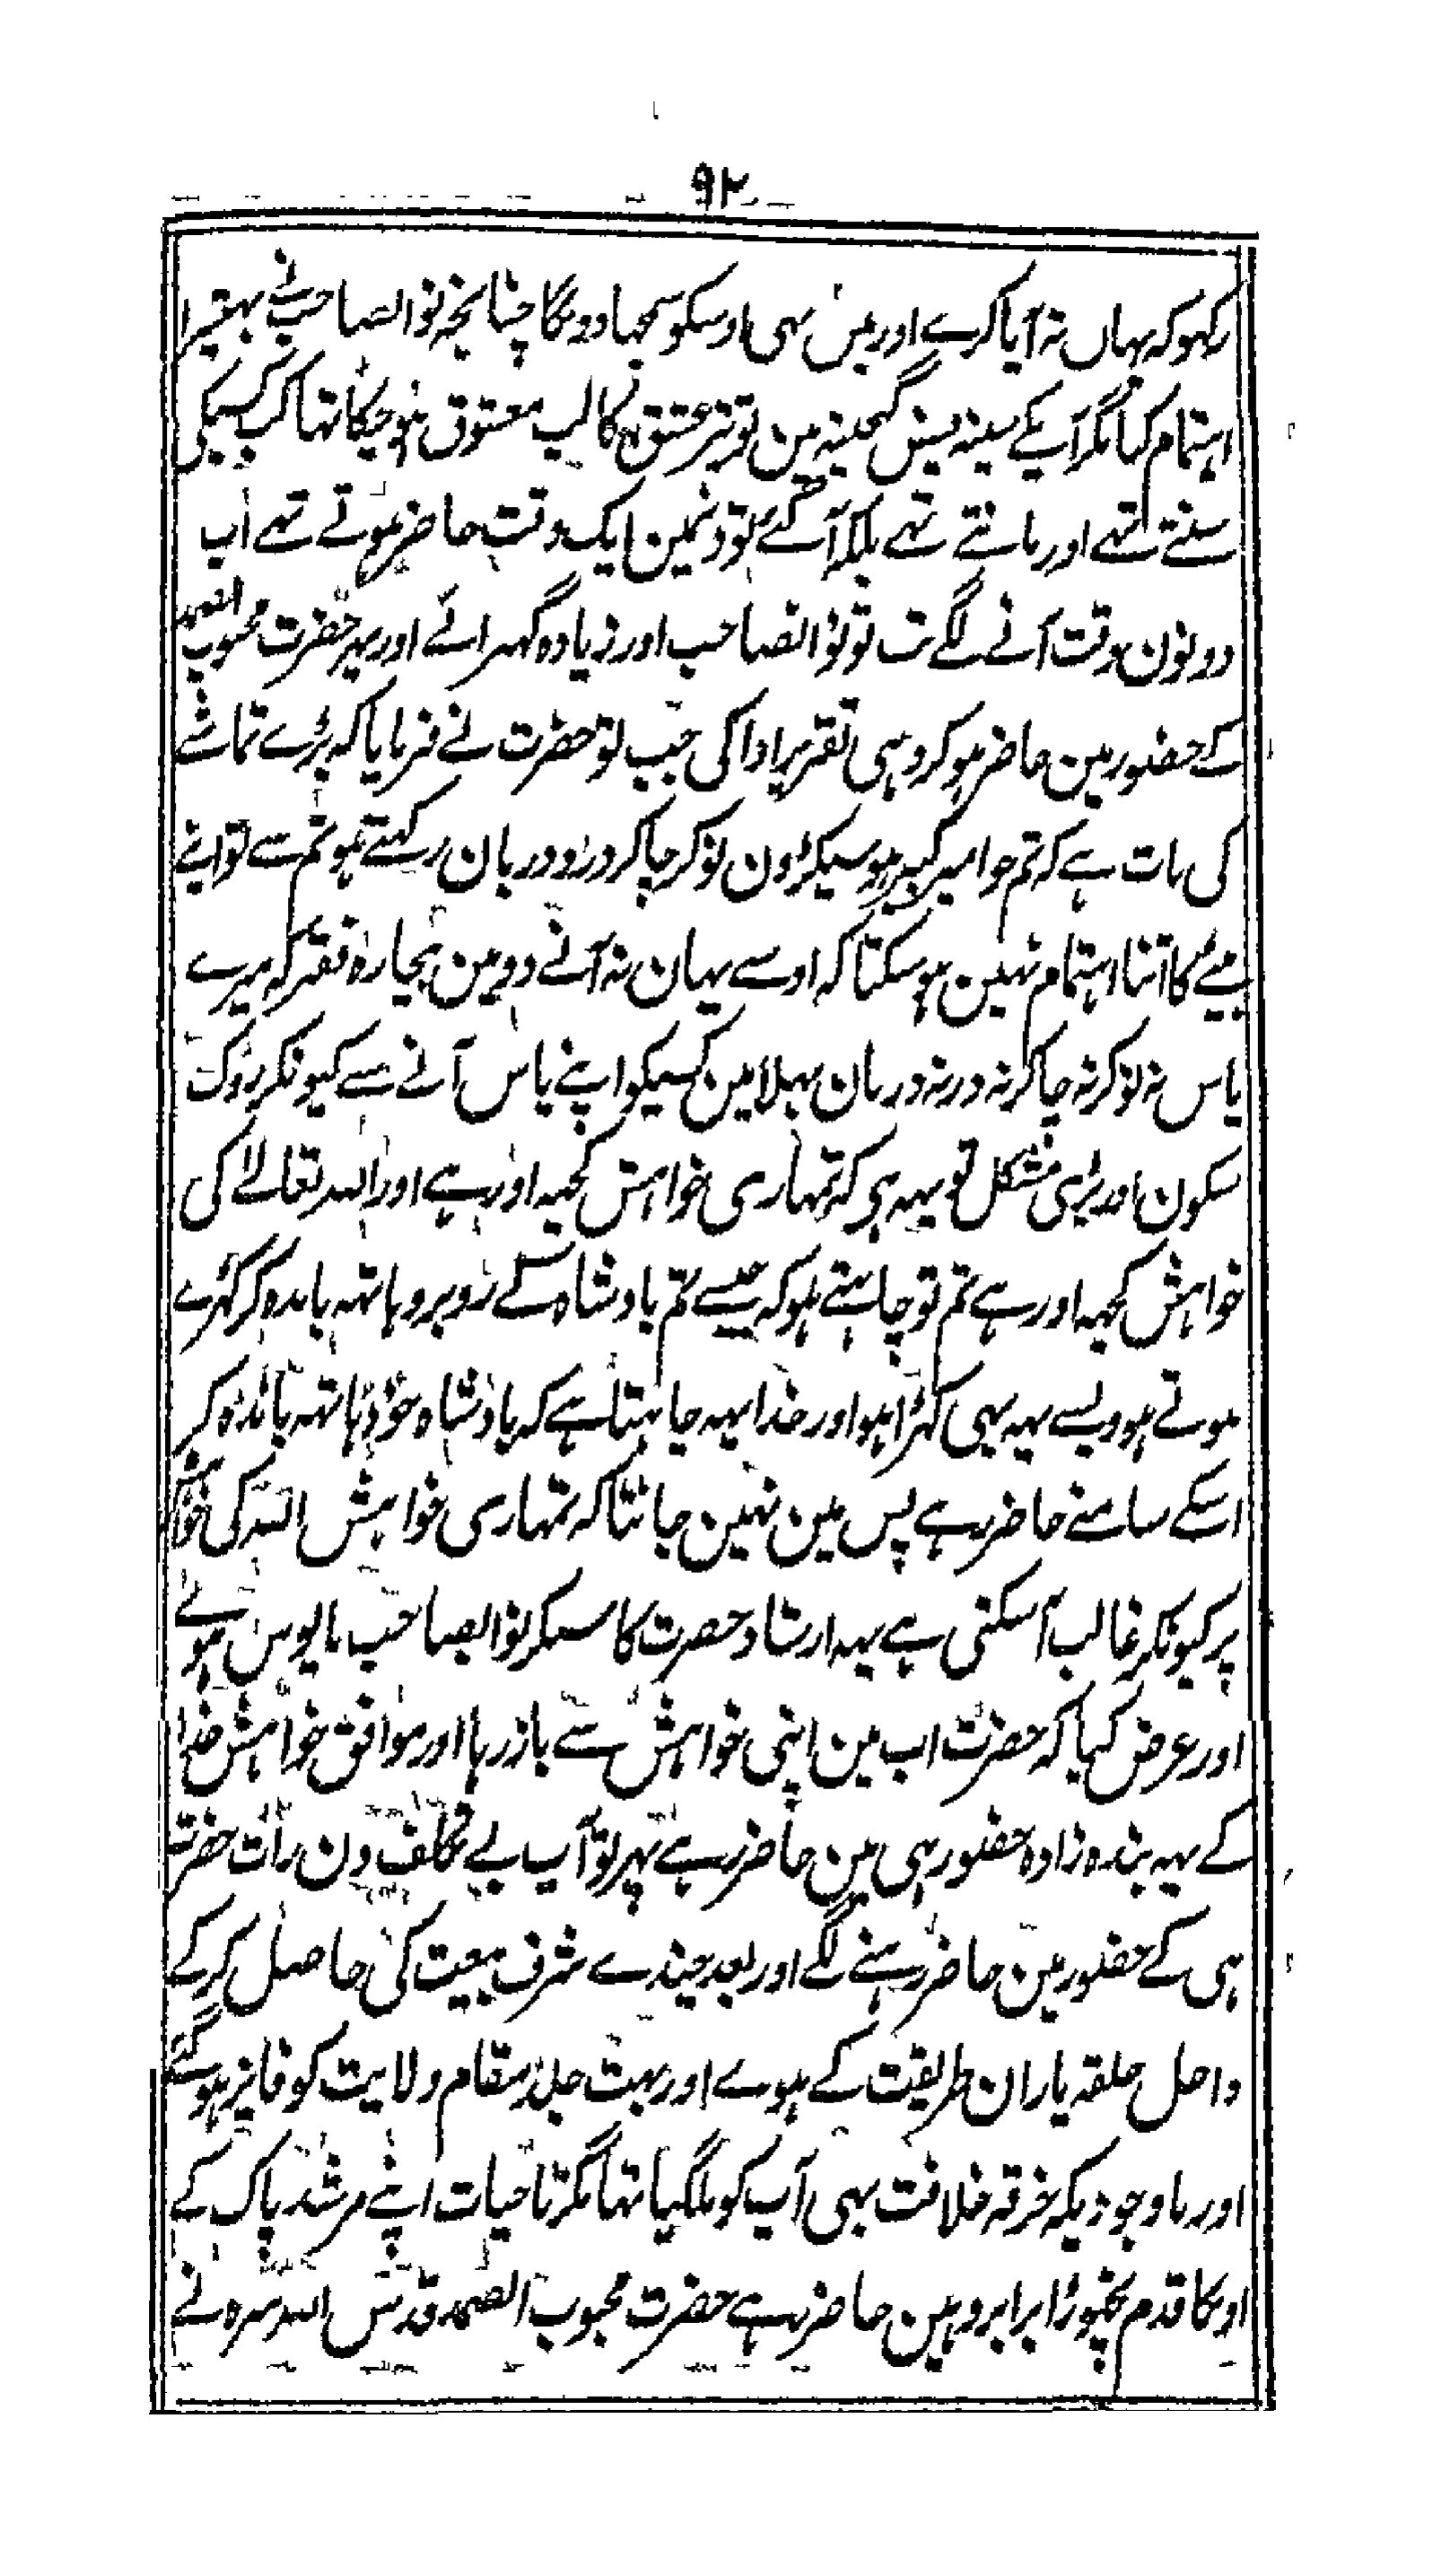 ۹۲
رکہو کہ یہاں نہ آیا کرے اور میں بہی اوسکو سمجہا دونگا چنانچہ نوابصاحب نے بہتیرا
اہتمام کیا مگر آپکے سینہ بیض گنجینہ مین تو تیر عشق کا لب معشوق ہو چکا تہا کب کسیکی
سنتے تہے اور مانتے تہے بلکہ آگے تو دنمین ایک وقت حاضر ہوتے تہے اب
دونون وقت آنے لگے تب تو نوابصاحب اور زیادہ گہبرائے اور پہر حضرت محبوب الصمد
کے حضور مین حاضر ہو کر وہی تقریر ادا کی جب تو حضرت نے فرمایا کہ بڑے تماشے
کی بات ہے کہ تم جو امیر کبیر ہو سیکڑون نوکر چاکر در و دربان رکہتے ہو تم سے تو اپنے
بیٹے کا اتنا اہتمام نہین ہو سکتا کہ اوسے یہان نہ آنے دو مین بیچارہ فقیر کہ میرے
پاس نہ نوکر نہ چاکر نہ در نہ دربان بہلا مین کسیکو اپنے پاس آنے سے کیونکر روک
سکون اور بڑی مشکل تو یہہ ہی کہ تمہاری خواہش کچہہ اور ہے اور اللہ تعالے کی
خواہش کچہہ اور ہے تم تو چاہتے ہو کہ جیسے تم بادشاہ کے روبرو ہاتہہ باندہ کر کہڑے
ہوتے ہو ویسے یہہ بہی کہڑا ہو اور خدا یہہ چاہتا ہے کہ بادشاہ خود ہاتہہ باندہ کر
اسکے سامنے حاضر رہے پس مین نہین جانتا کہ تمہاری خواہش اللہ کی خواہش
پر کیونکر غالب آسکتی ہے یہہ ارشاد حضرت کا سنکر نوابصاحب مایوس ہوئے
اور عرض کیا کہ حضرت اب مین اپنی خواہش سے باز رہا اور موافق خواہش خدا
کے یہہ بندہ زادہ حضور ہی مین حاضر رہے پہر تو آپ بے تکلف دن رات حضرت
ہی کے حضور مین حاضر رہنے لگے اور بعد چندے شرف بیعت کی حاصل کر کے
داخل حلقہ یاران طریقت کے ہوے اور بہت جلد مقام ولایت کو فایز ہو گئے
اور باوجودیکہ خرقہ خلافت بہی آپ کو ملگیا تہا مگر تا حیات اپنے مرشد پاک کے
اونکا قدم نچہوڑا برابر وہین حاضر رہے حضرت محبوب الصمد قدس اللہ سرہ نے